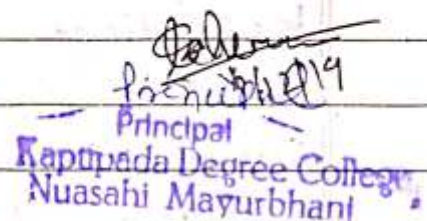 Principal
Principal
Kaptipada Degree College
Nuasahi Mayurbhanj